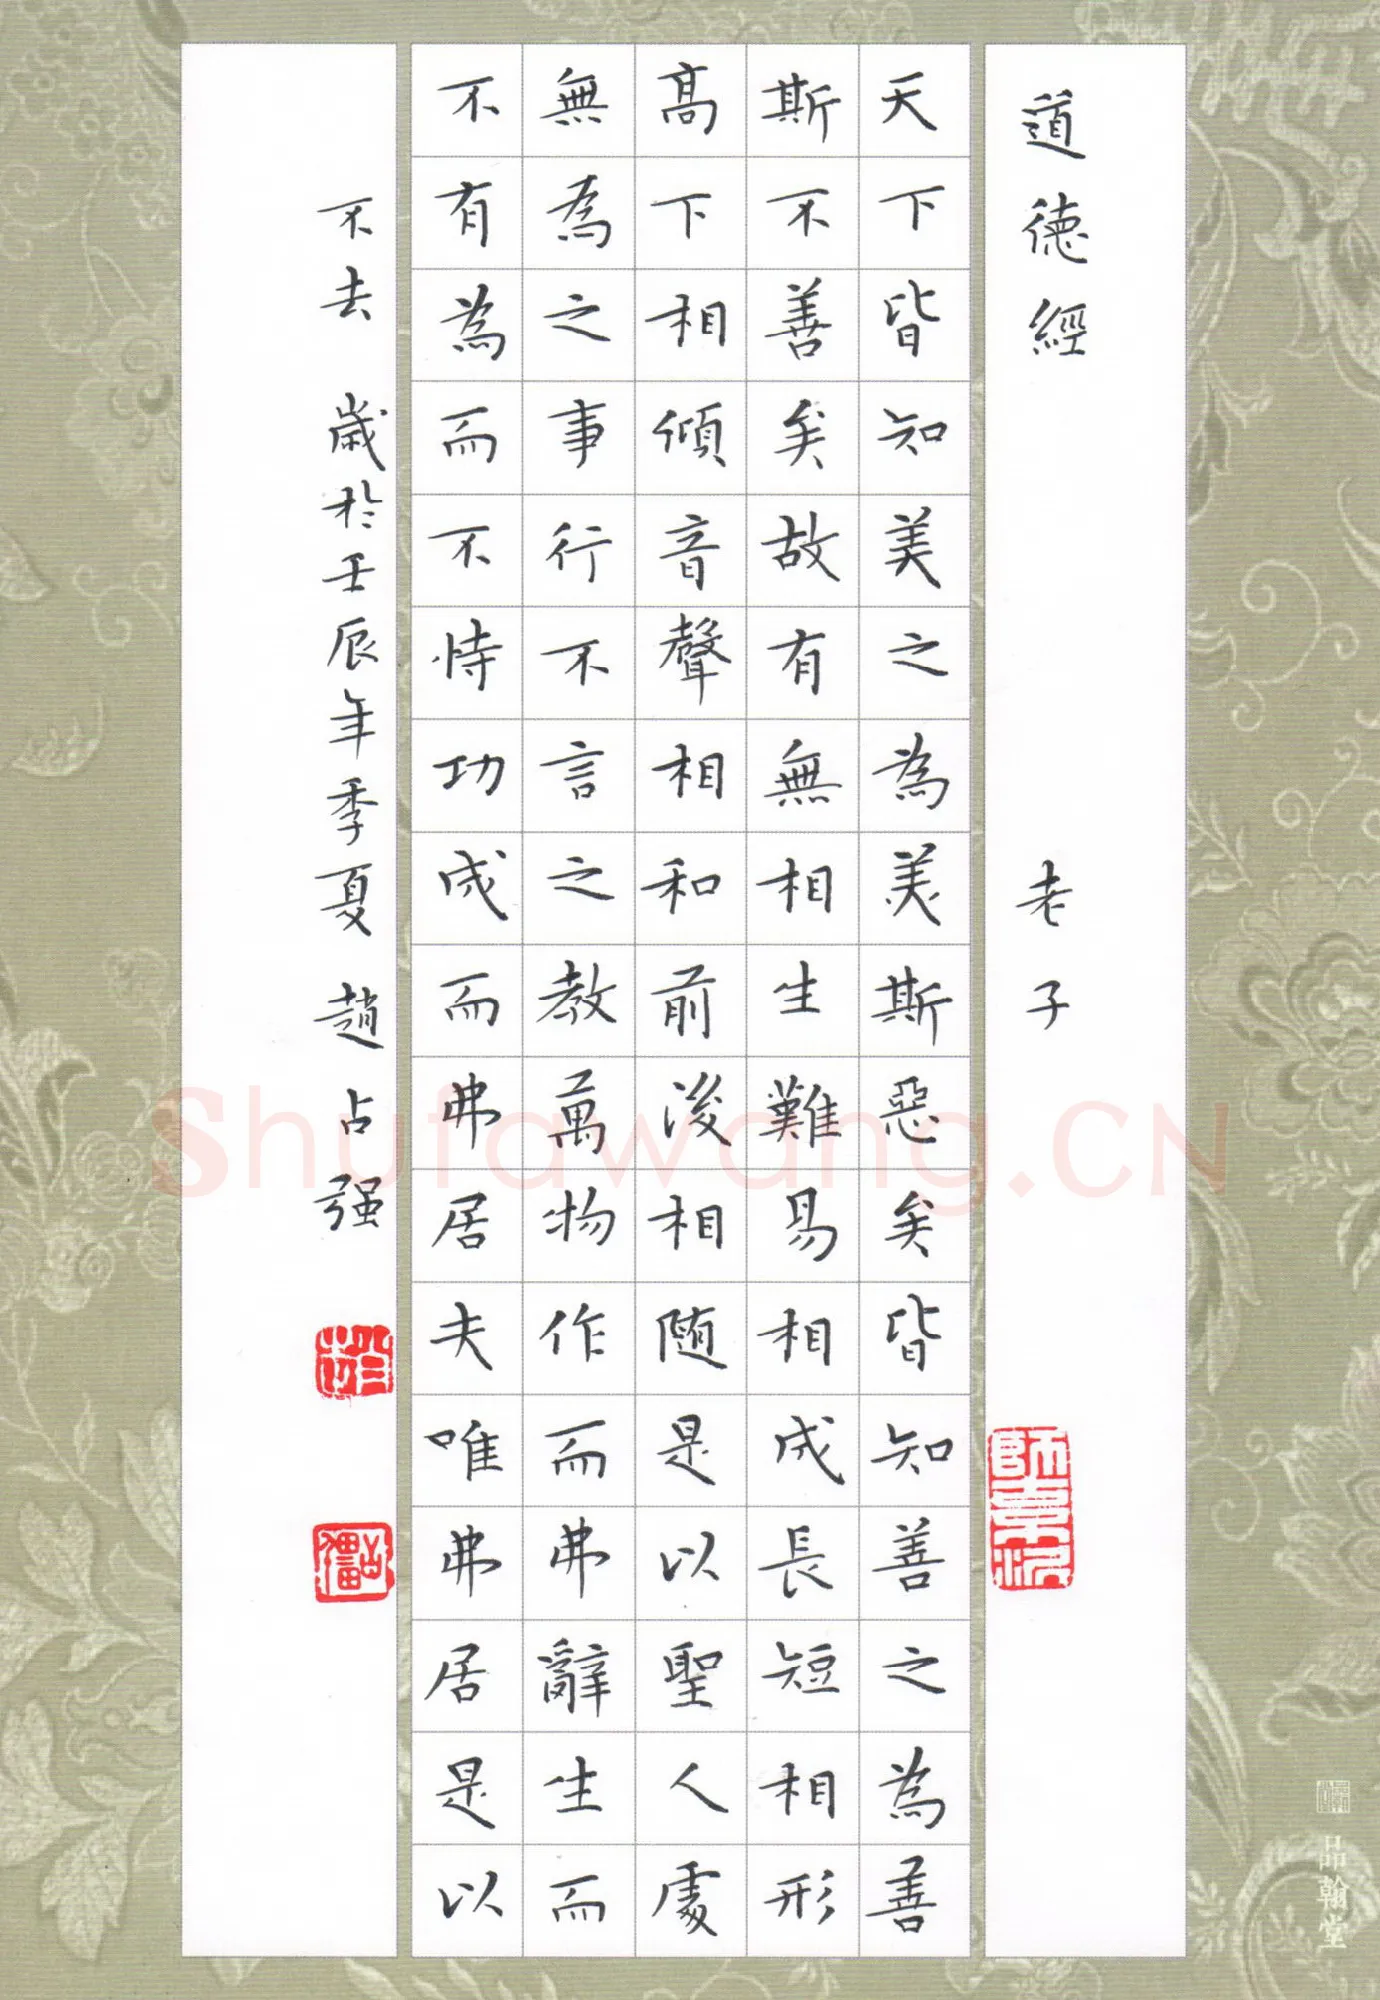 道德經 老子
天下皆知美之為美斯惡矣皆知善之為善
斯不善矣故有無相生難易相成長短相形
高下相傾音聲相和前後相随是以聖人處
無為之事行不言之教萬物作而弗辭生而
不有為而不恃功成而弗居夫唯弗居是以
不去 歲於壬辰年季夏 趙占强
品翰堂
Shufawang.CN